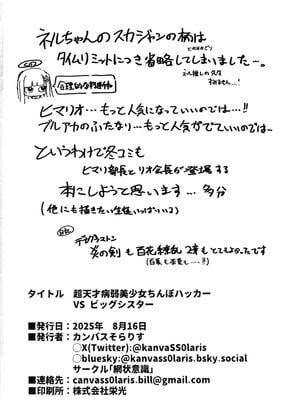 ネルちゃんのスカジャンの柄は
タイムリミットにつき省略してしまいました…。
ネル推しの先生
すみません…!
合理的な判断だわ
ヒマリオ…もっと人気になっていいのでは…!!
ブルアカのふたなり…もっと人気がでていいのでは…
というわけで冬コミも
ヒマリ部長とリオ会長が登場する
本にしようと思います…多分
(他にも描きたい生徒いっぱいいる)
デカグラマトン
炎の剣も百花繚乱2章もとてもよかったです
タイトル 超天才病弱美少女ちんぽハッカー
VS ビッグシスター
■発行日:2025年 8月16日
■発行者:カンバスそらりす
○X(Twitter):@kanvaSS0laris
○bluesky:@kanvass0laris.bsky.social
サークル「網状意識」
■連絡先:canvass0laris.bill@gmail.com
■印刷所:株式会社栄光